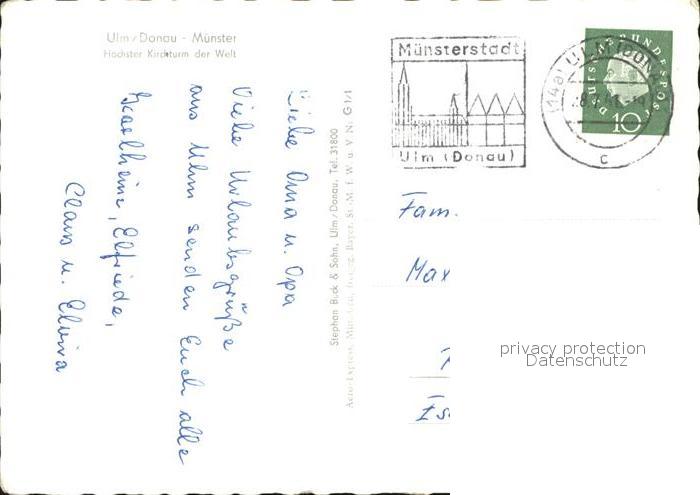 Ulm/Donau - Münster
Höchster Kirchturm der Welt
Liebe Oma u. Opa
Viele Urlaubsgrüße
aus Ulm senden Euch alle
Karlheinz, Elfriede,
Claus u. Elvira
Stephan Bick & Sohn, Ulm/Donau, Tel. 31800
G 1/1
Münsterstadt
Ulm (Donau)
(14a) ULM (DONAU)
c
DEUTSCHE BUNDESPOST
10
Fam.
Max
privacy protection
Datenschutz